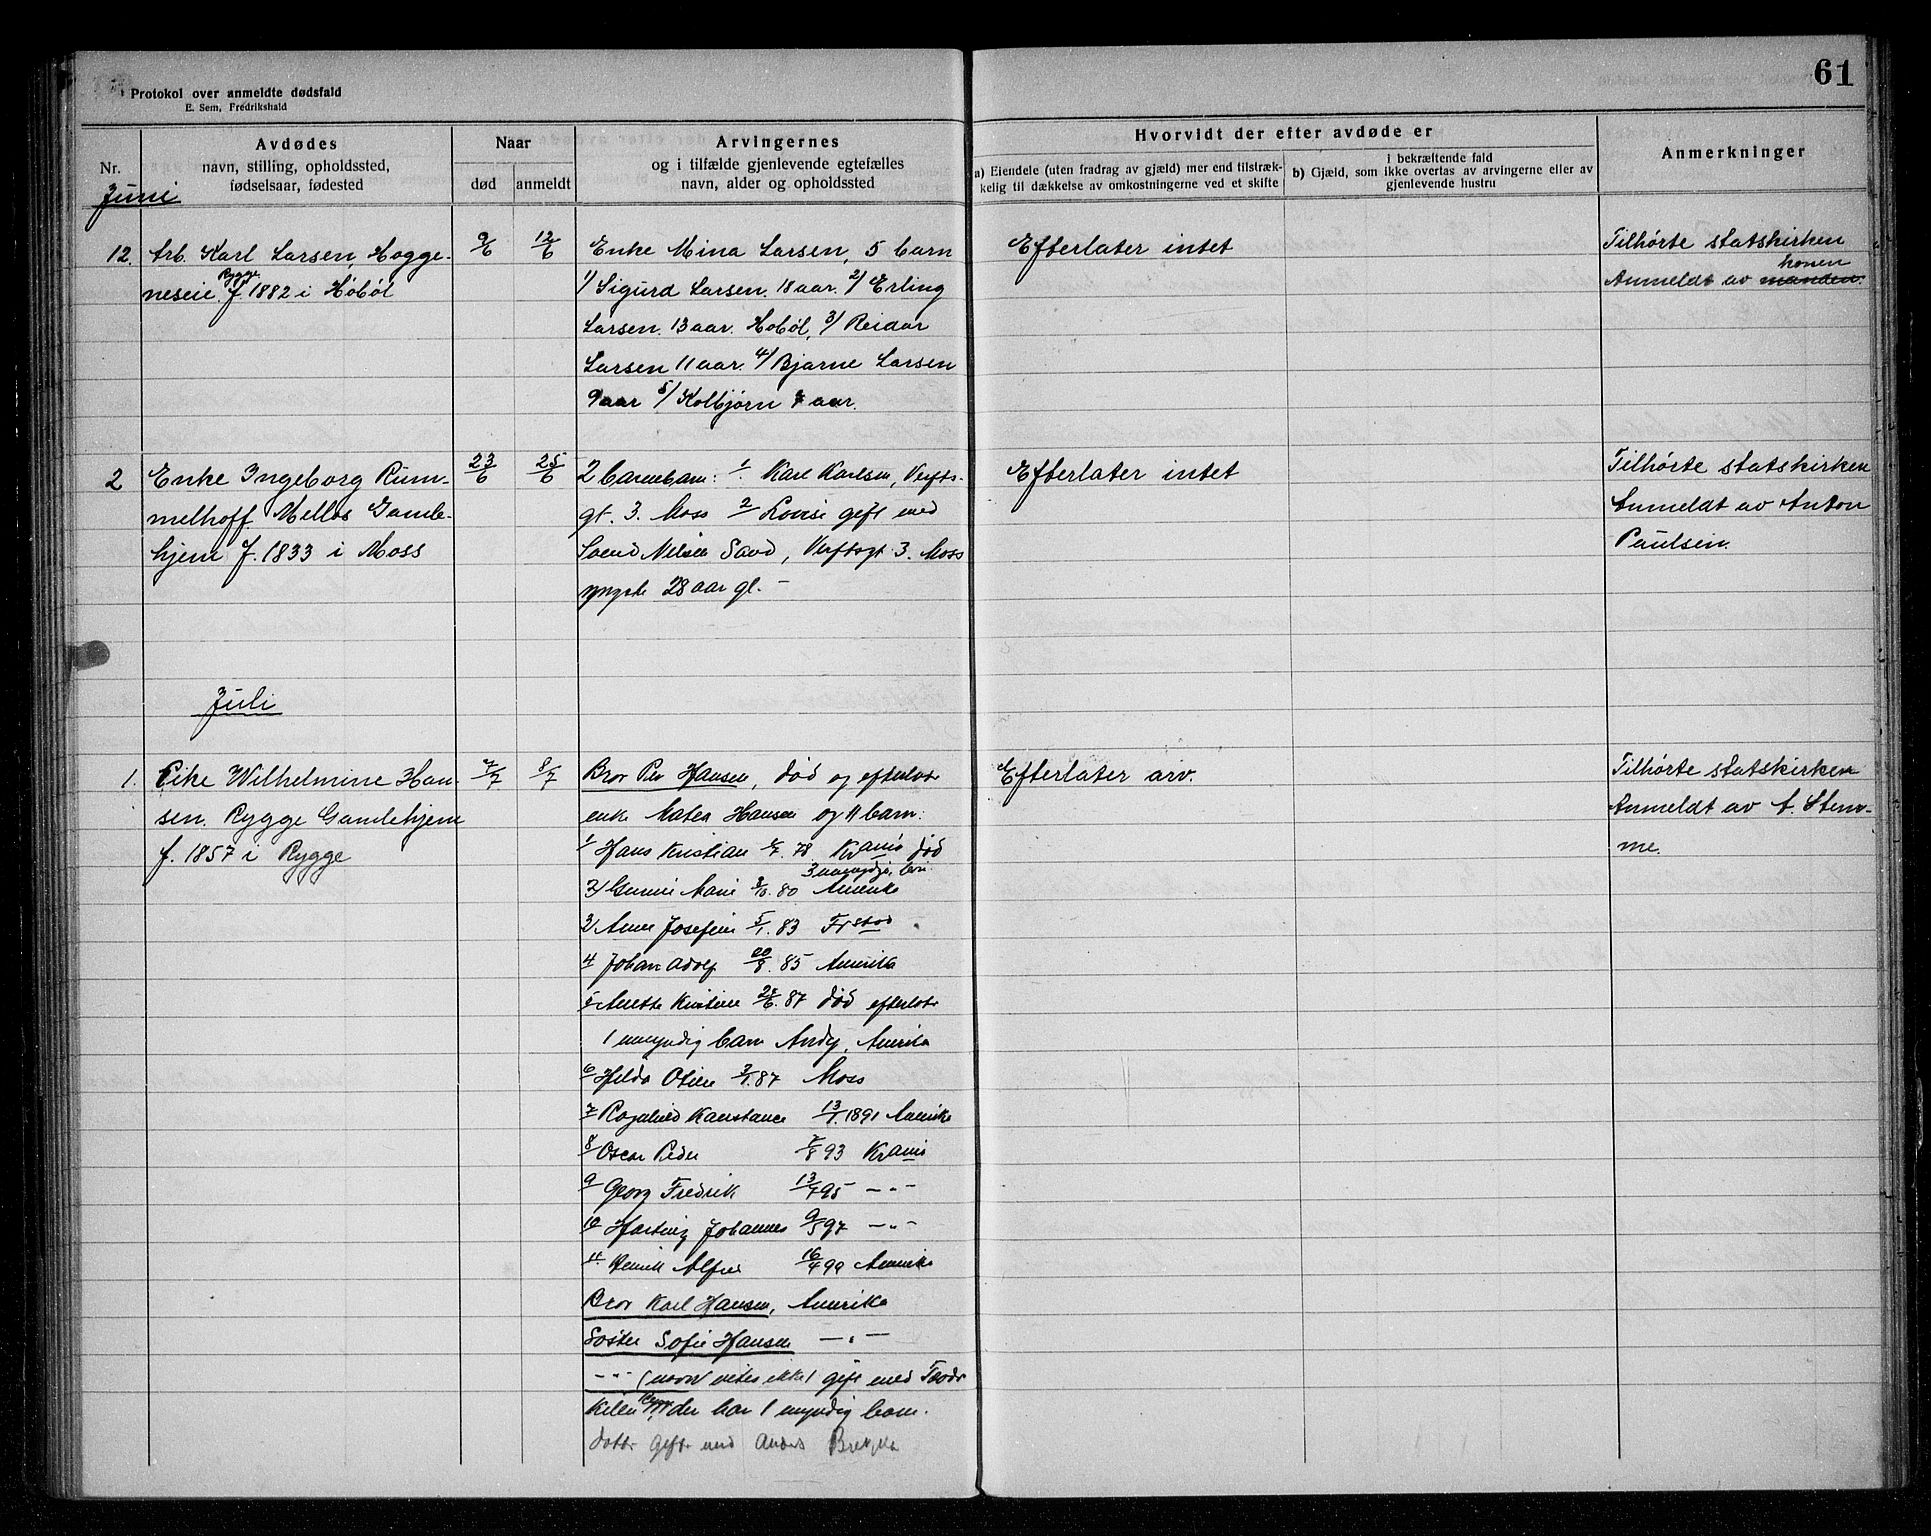 61
Protokol over anmeldte dødsfald
E. Sem, Fredrikshald
Nr.
Avdødes
navn, stilling, opholdssted,
fødselsaar, fødested
Naar
død
anmeldt
Arvingernes
og i tilfælde gjenlevende egtefælles
navn, alder og opholdssted
Hvorvidt der efter avdøde er
a) Eiendele (uten fradrag av gjæld) mer end tilstræk-
kelig til dækkelse av omkostningerne ved et skifte
i bekræftende fald
b) Gjæld, som ikke overtas av arvingerne eller av
gjenlevende hustru
Anmerkninger
Juni
12.
Arb. Karl Larsen, Hogge-
neseie, Rygge f. 1882 i Høbøl
9/6
12/6
Enke Mina Larsen, 5 barn
1/ Sigurd Larsen. 18 aar. 2/ Erling
Larsen. 13 aar. Høbøl, 3/ Reidar
Larsen 11 aar. 4/ Bjarne Larsen
9 aar 5/ Kolbjørn 7 aar.
Efterlater intet
Tilhørte statskirken
Anmeldt av manden. konen
2
Enke Ingeborg Rum-
melhoff. Mellos Gamle-
hjem f. 1833 i Moss
23/6
25/6
2 barnebarn: 1. Karl Karlsen, Verfts-
gt. 3. Moss 2 Lovise gift med
Svend Nilsen Sand, Verftsgt. 3. Moss
yngste 28 aar gl. -
Efterlater intet
Tilhørte statskirken
Anmeldt av Anton
Paulsen.
Juli
1.
Pike Wilhelmine Han-
sen. Rygge Gamlehjem
f. 1857 i Rygge
7/7
8/7
Bror Per Hansen, død og efterlote
enke Matea Hansen og 11 barn:
1/ Hans Kristian 78 Kr.ania død
3 umyndige barn
2/ Gunni Marie 80 Amerika
3/ Anne Josefine 5/1. 83 Fr.stad
4 Johan Adolf 20/8. 85 Amerika
5 Anette Kristine 87 død efterlote
1 umyndig barn Andy, Amerika
6 Hilda Otilie 87 Moss
7 Ragnhild Konstance 13/1. 1891 Amerika
8 Oscar Peder 7/8 93 Kr.ania
9 Georg Fredrik 95 -"-
10 Hartvig Johannes 9/5 97 -"-
11. Henrik Alfred 16/4 99 Amerika
Bror Karl Hansen, Amerika
Søster Sofie Hansen -"-
-"- (navn vites ikke) gift med
Rygge, der har 1 umyndig barn.
datter gift med Anders
Efterlater arv.
Tilhørte statskirken
Anmeldt av A. Stem-
me.